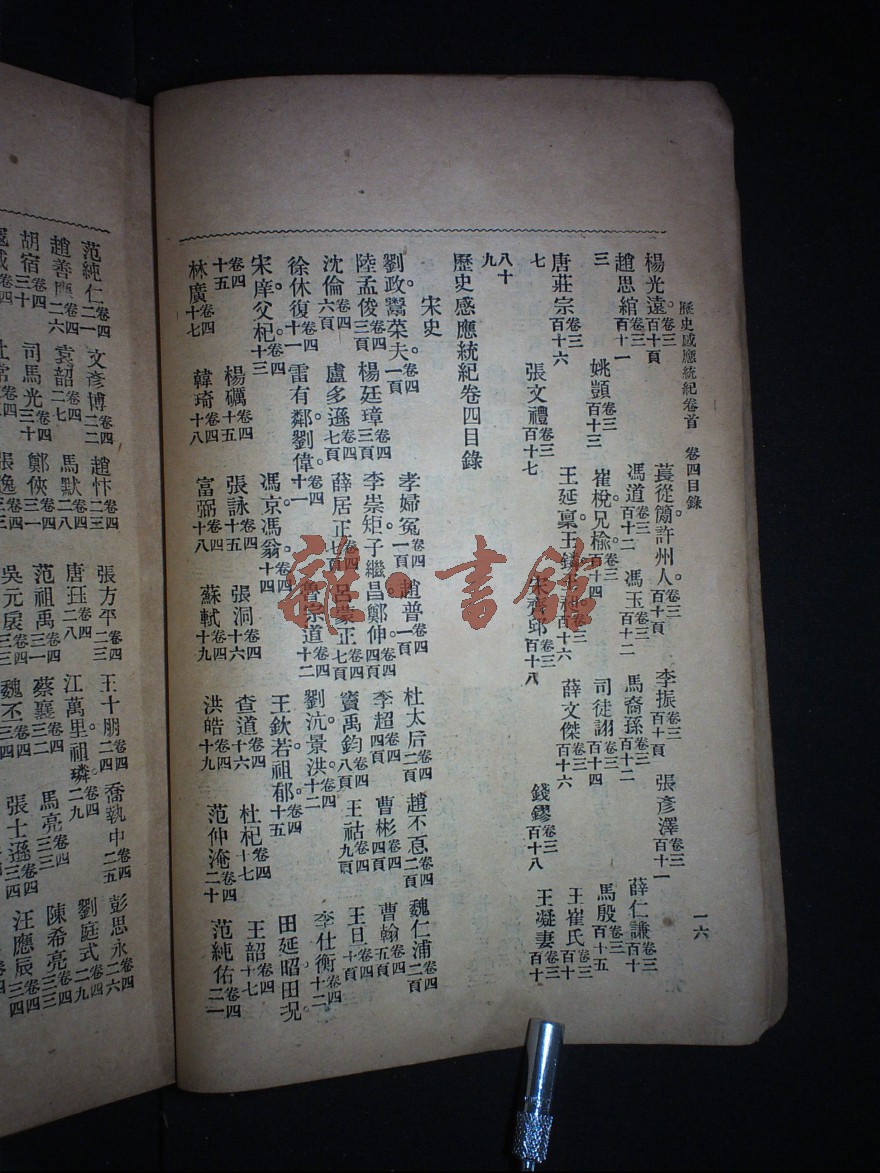 歷史感應統紀卷首 卷四目錄 一六
楊光遠。卷三百十頁 萇從簡許州人。卷三百十頁 李振卷三百十頁 張彥澤卷三百十一
趙思綰卷三百十一 馮道卷三百十二 馮玉卷三百十二 馬裔孫卷三百十二 薛仁謙卷三百十
三 姚顗卷三百十三 崔梲兄卷三百十四 司徒詡卷三百十四 馬殷卷三百十五
唐莊宗卷三百十六 王延稟王卷三百十六 薛文傑卷三百十六 王崔氏卷三百十
七 張文禮卷三百十七 宋齊邱卷三百十八 錢鏐卷三百十八 王凝妻卷三百十
八十九
歷史感應統紀卷四目錄
宋史
劉政鬻棻夫。卷四一頁 孝婦冤卷四一頁 趙普卷四一頁 杜太后卷四二頁 趙不卷四二頁 魏仁浦卷四二頁
陸孟俊卷四三頁 楊廷璋卷四三頁 李崇矩子繼昌鄭伸。卷四四頁 李超卷四四頁 曹彬卷四四頁 曹翰卷四五頁
沈倫卷四六頁 盧多遜卷四七頁 薛居正卷四七頁 呂蒙正卷四七頁 竇禹鈞卷四八頁 王祜卷四九頁 王旦卷四十頁
徐休復卷四十一 雷有鄰劉偉。卷四十一 魯宗道卷四十二 劉沆景洪。卷四十二 李仕衡卷四十二
宋庠父杞。卷四十三 馮京馮翁。卷四十四 王欽若祖郁。卷四十五 田延昭田況。
卷四十五 楊礪卷四十五 張詠卷四十五 張洞卷四十六 查道卷四十六 杜杞卷四十七 王韶卷四十七
林廣卷四十七 韓琦卷四十八 富弼卷四十八 蘇軾卷四十九 洪皓卷四十九 范仲淹卷四二十 范純佑卷四二一
范純仁卷四二一 文彥博卷四二二 趙忭卷四二三 張方平卷四二三 王十朋卷四二四 喬執中卷四二五 彭思永卷四二六
趙善應卷四二六 袁韶卷四二七 馬默卷四二八 唐玨卷四二八 江萬里祖璘。卷四二九 劉庭式卷四二九
胡宿卷四三十 司馬光卷四三十 鄭俠卷四三一 范祖禹卷四三一 蔡襄卷四三二 馬亮卷四三三 陳希亮卷四三三
吳元扆卷四三三 魏丕卷四三四 張士遜卷四三四 汪應辰卷四三四